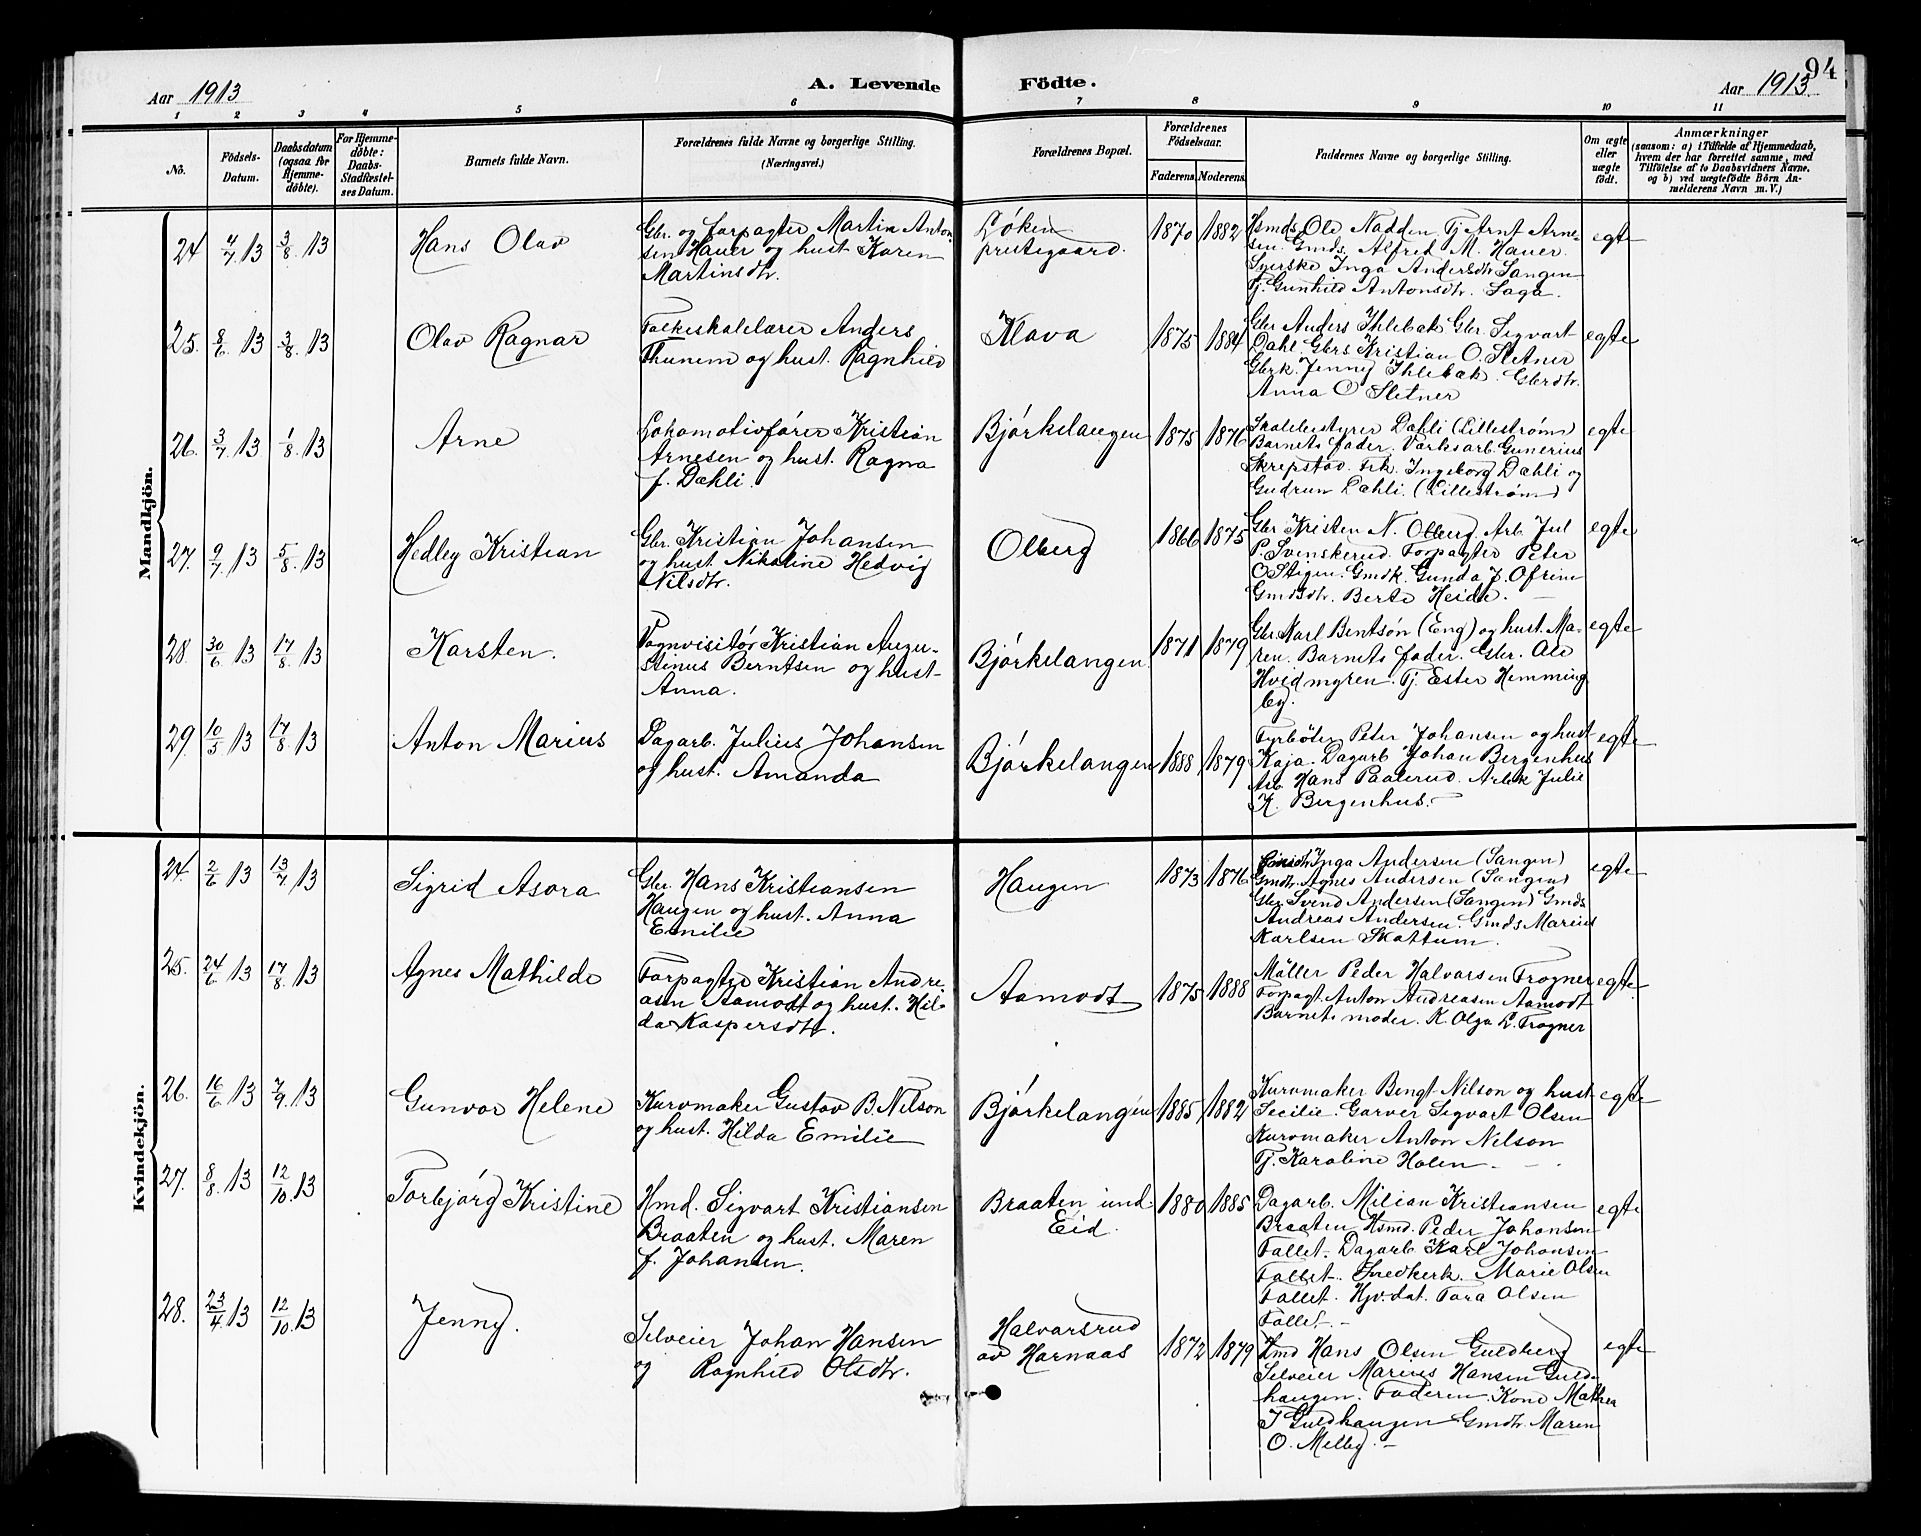 94
Aar 1913 A. Levende Födte. Aar 1913.
1 2 3 4 5 6 7 8 9 10 11
No. Födsels-Datum. Daabsdatum (ogsaa for Hjemme-döbte). For Hjemme-döbte: Daabs-Stadfæstel-ses Datum. Barnets fulde Navn. Forældrenes fulde Navne og borgerlige Stilling. (Næringsvei.) Forældrenes Bopæl. Forældrenes Födselsaar. Faderens. Moderens. Faddernes Navne og borgerlige Stilling. Om ægte eller uægte födt. Anmærkninger (saasom: a) i Tilfælde af Hjemmedaab, hvem der har forrettet samme, med Tilföielse af to Daabsvidners Navne. og b) ved uægtefödte Börn An-melderens Navn m. V.)
Mandkjön.
24 4/7 13 3/8 13 Hans Olav Gbr. og forpagter Martin Anton- Löken 1870 1882 Hsmds. Ole Nadden Tj Arnt Arne- egte
sen Hauer og hust Karen prestegaard. sen. Gmds. Alfred M. Hauer.
Martinsdtr. Syerske Inga Andersdtr. Sangen
Tj. Gunhild Antonsdtr. Saga.
25. 8/6 13 3/8 13 Olav Ragnar Folkeskolelærer Anders Klava 1875 1884 Gbr Anders Ihlebæk Gbr. Sigvart egte
Thunem og hust. Ragnhild Dahl. Gbrs Kristian O. Sletner
Gbrk. Jenny Ihlebæk. Gbrdtr.
Anna O Sletner
26. 3/7 13 1/8 13 Arne Lokomotivförer Kristian Björkelangen 1875 1876 Skolebestyrer Dæhli (Lilleström) egte
Arnesen og hust. Ragna Barnets fader. Verksarb. Gunerius
f. Dæhli. Skrepstad. Frk. Ingeborg Dæhli og
Gudrun Dæhli. (Lilleström)
27. 9/7 13 5/8 13 Hedley Kristian Gbr. Kristian Johansen Olberg 1866 1875 Gbr Kristen N. Olberg. Arb. Jul egte
og hust Nikoline Hedvig P. Svenskerud. Forpagter Peter
Nilsdtr. O Stigen. Gmdk. Gunda J. Ofrim
Gmdsdtr. Berte Heide.
28. 30/6 13 17/8 13 Karsten. Vognvisitör Kristian Augu- Björkelangen. 1871 1879 Gbr. Karl Bentsön (Eng) og hust. Ma- egte
stinus Berntsen og hust- ren. Barnets fader. Gbr. Ole
Anna. Hvidmyren. Tj. Ester Hemming
by.
29. 10/5 13 17/8 13 Anton Marius Dagarb. Julius Johansen Björkelangen 1888 1879 Fyrböter Peter Johansen og hust egte
og hust. Amanda Kaja. Dagarb Johan Bergenhus
Arb. Hans Paalerud. Arbk Julie
K. Bergenhus.
Kvindekjön.
24. 2/6 13 13/7 13 Sigrid Asora Gbr. Hans Kristiansen Haugen 1873 1876 Inga Andersen (Sangen) egte
Haugen og hust. Anna Gmdtr. Agnes Andersen (Sangen)
Emilie Gbr. Svend Andersen (Sangen) Gmds.
Andreas Andersen. Gmds Marius
Karlsen Skattum.
25. 24/6 13 17/8 13 Agnes Mathilde Forpagter Kristian Andre- Aamodt 1875 1888 Möller Peder Halvorsen Frogner egte.
asen Aamodt og hust. Hil- Forpagt. Anton Andreasen Aamodt
da Kaspersdtr. Barnets moder. K. Olga L. Frogner
26. 16/6 13 7/9 13 Gunvor Helene Kurvmaker Gustav B. Nilson Björkelangen 1885 1882 Kurvmaker Bengt Nilson og hust egte
og hust. Hilda Emilie Cecilie. Garver Sigvart Olsen
Kurvmaker Anton Nilson
Tj. Karoline Holen
27. 8/8 13 12/10 13 Torbjörg Kristine Hmd. Sigvart Kristiansen Braaten und. 1880 1885 Dagarb. Milian Kristiansen egte
Braaten og hust. Maren Eid. Braaten Hsmd. Peder Johansen
f. Johansen. Fallet. Dagarb. Karl Johansen
Fallet. Snedkerk. Marie Olsen
Fallet. Hjv.dat. Tora Olsen
Fallet.
28. 23/4 13 12/10 13 Jenny. Selveier Johan Hansen Halvorsrud 1872 1879 Hmd Hans Olsen Guldberg egte
og Ragnhild Olsdtr. av Harnaas Selveier Marius Hansen Guld-
haugen. Faderen. Kone Mathea
J Guldhaugen Gmdtr. Maren
O. Melby.